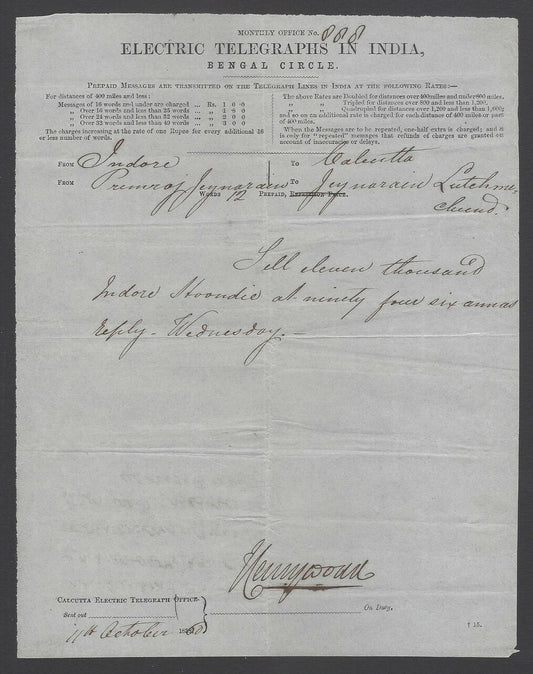 MONTHLY OFFICE No. 888
ELECTRIC TELEGRAPHS IN INDIA,
BENGAL CIRCLE.
PREPAID MESSAGES ARE TRANSMITTED ON THE TELEGRAPH LINES IN INDIA AT THE FOLLOWING RATES:—
For distances of 400 miles and less:
Messages of 16 words and under are charged ... Rs. 1 0 0
„ Over 16 words and less than 25 words ... „ 1 8 0
„ Over 24 words and less than 33 words ... „ 2 0 0
„ Over 32 words and less than 49 words ... „ 3 0 0
The charges increasing at the rate of one Rupee for every additional 16
or less number of words.
The above Rates are Doubled for distances over 400 miles and under 800 miles.
„ „ Tripled for distances over 800 and less than 1,200.
„ „ Quadrupled for distances over 1,200 and less than 1,600;
and so on an additional rate is charged for each distance of 400 miles or part
of 400 miles.
When the Messages are to be repeated, one-half extra is charged; and it
is only for "repeated" messages that refunds of charges are granted on
account of inaccuracies or delays.
FROM Indore TO Calcutta
FROM Premraj Jeynarain TO Jeynarain Lutchmi
chund.
WORDS 12 PREPAID,
Sell eleven thousand
Indore Hoondie at ninety four six annas
reply - Wednesday.—
CALCUTTA ELECTRIC TELEGRAPH OFFICE
Sent out
On Duty.
11th October 1860
† 15.